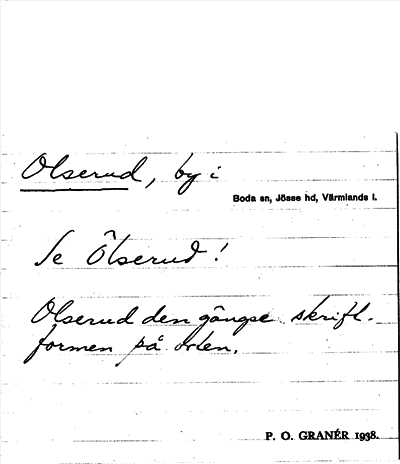 Olserud, by i
Boda sn, Jösse hd, Värmlands l.
Se Ölserud!
Olserud den gängse skriftl.
formen på orten.
P. O. GRANÉR 1938.